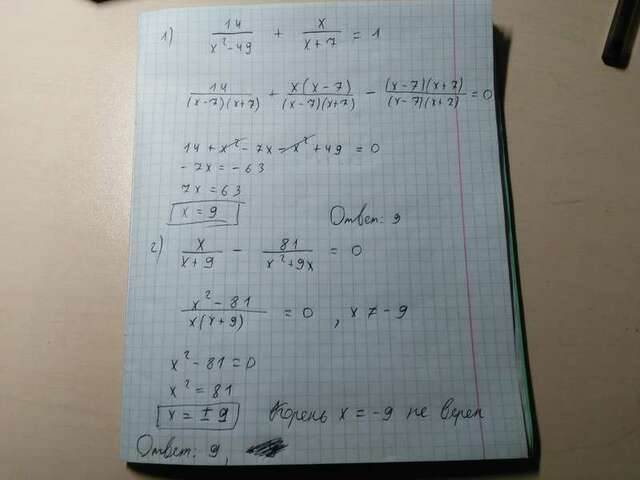 1) 14/(x²-49) + x/(x+7) = 1
14/((x-7)(x+7)) + x(x-7)/((x-7)(x+7)) - (x-7)(x+7)/((x-7)(x+7)) = 0
14 + x² - 7x - x² + 49 = 0
-7x = -63
7x = 63
x = 9 Ответ: 9
2) x/(x+9) - 81/(x²+9x) = 0
(x²-81)/(x(x+9)) = 0 , x ≠ -9
x² - 81 = 0
x² = 81
x = ± 9 Корень x = -9 не верен
Ответ: 9,